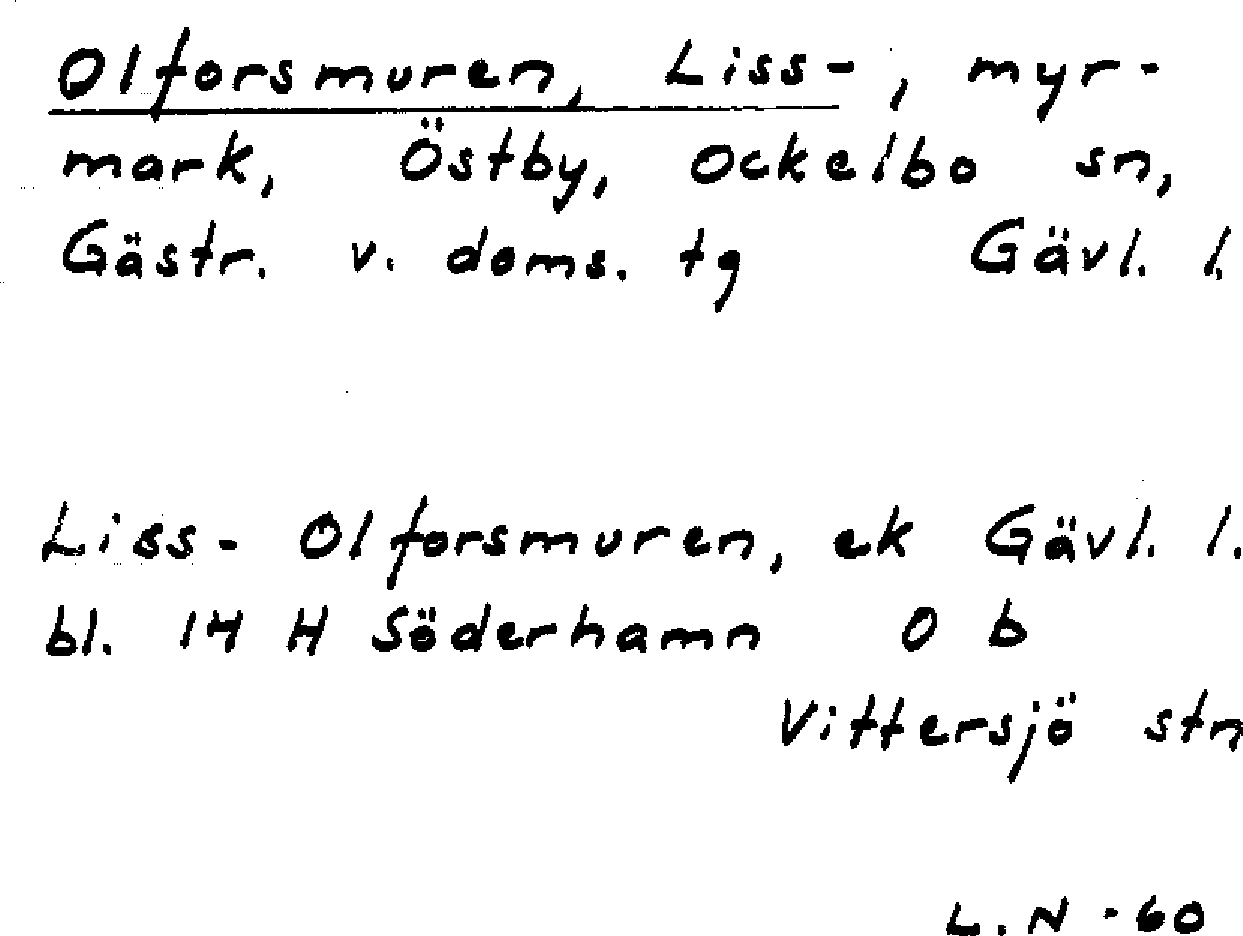 Olforsmuren, Liss-, myr-
mark, Östby, Ockelbo sn,
Gästr. v. doms. tg Gävl. l.
Liss- Olforsmuren, ek Gävl. l.
bl. 14 H Söderhamn O b
Vittersjö stn
L. N -60